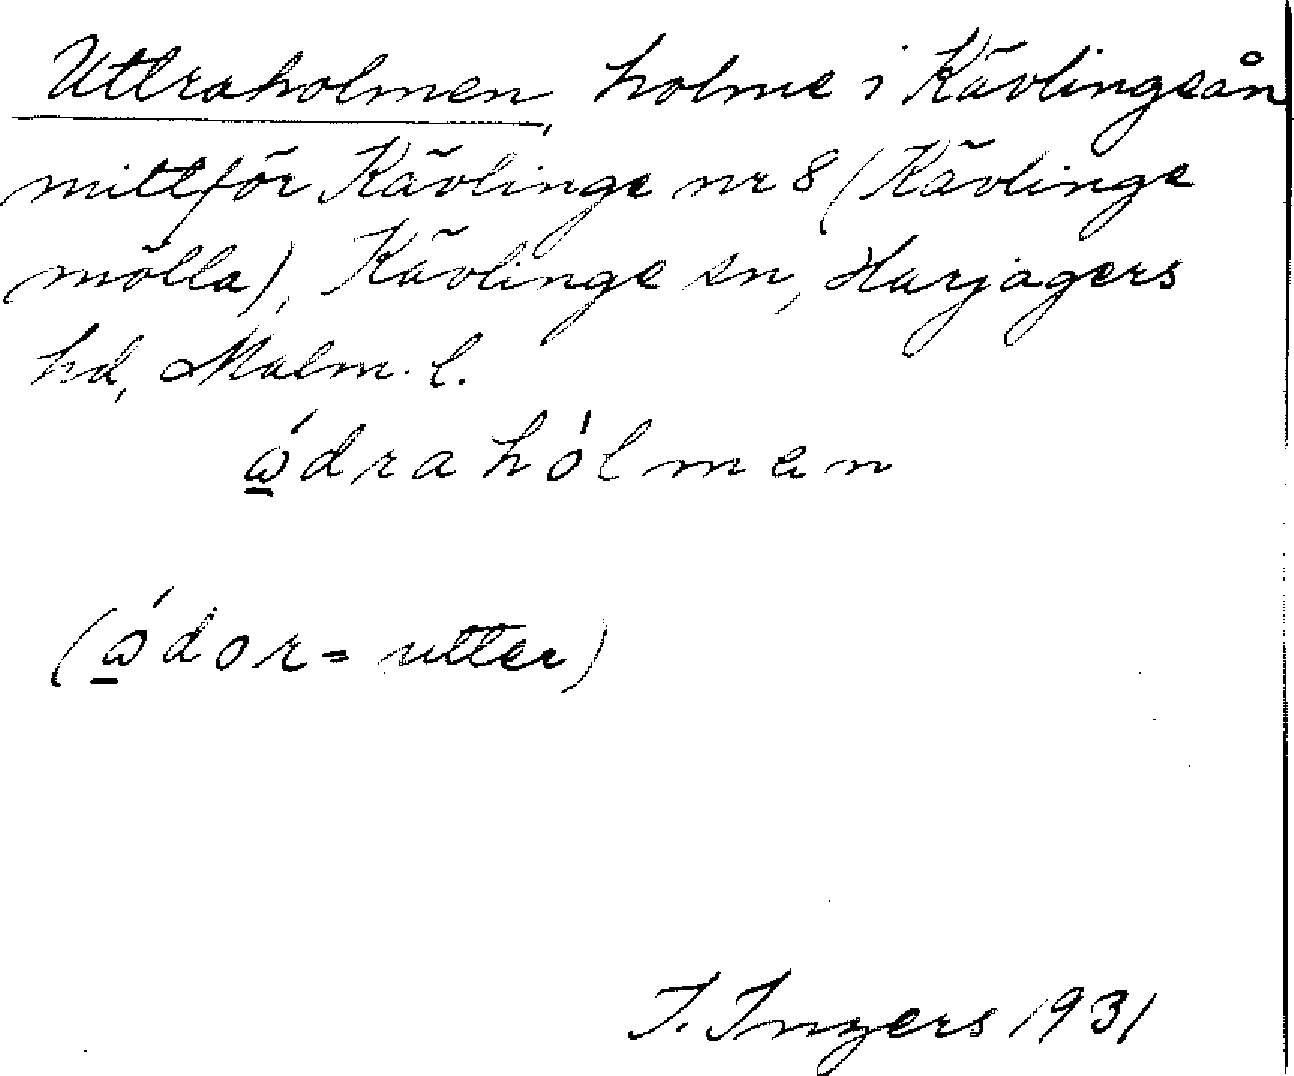 Uttraholmen, holme i Kävlingeån
mittför Kävlinge nr 8 (Kävlinge
mölla), Kävlinge sn, Harjagers
hd, Malm. l.
ώ̲drahólmen
(ώ̲dor = utter)
I. Ingers 1931